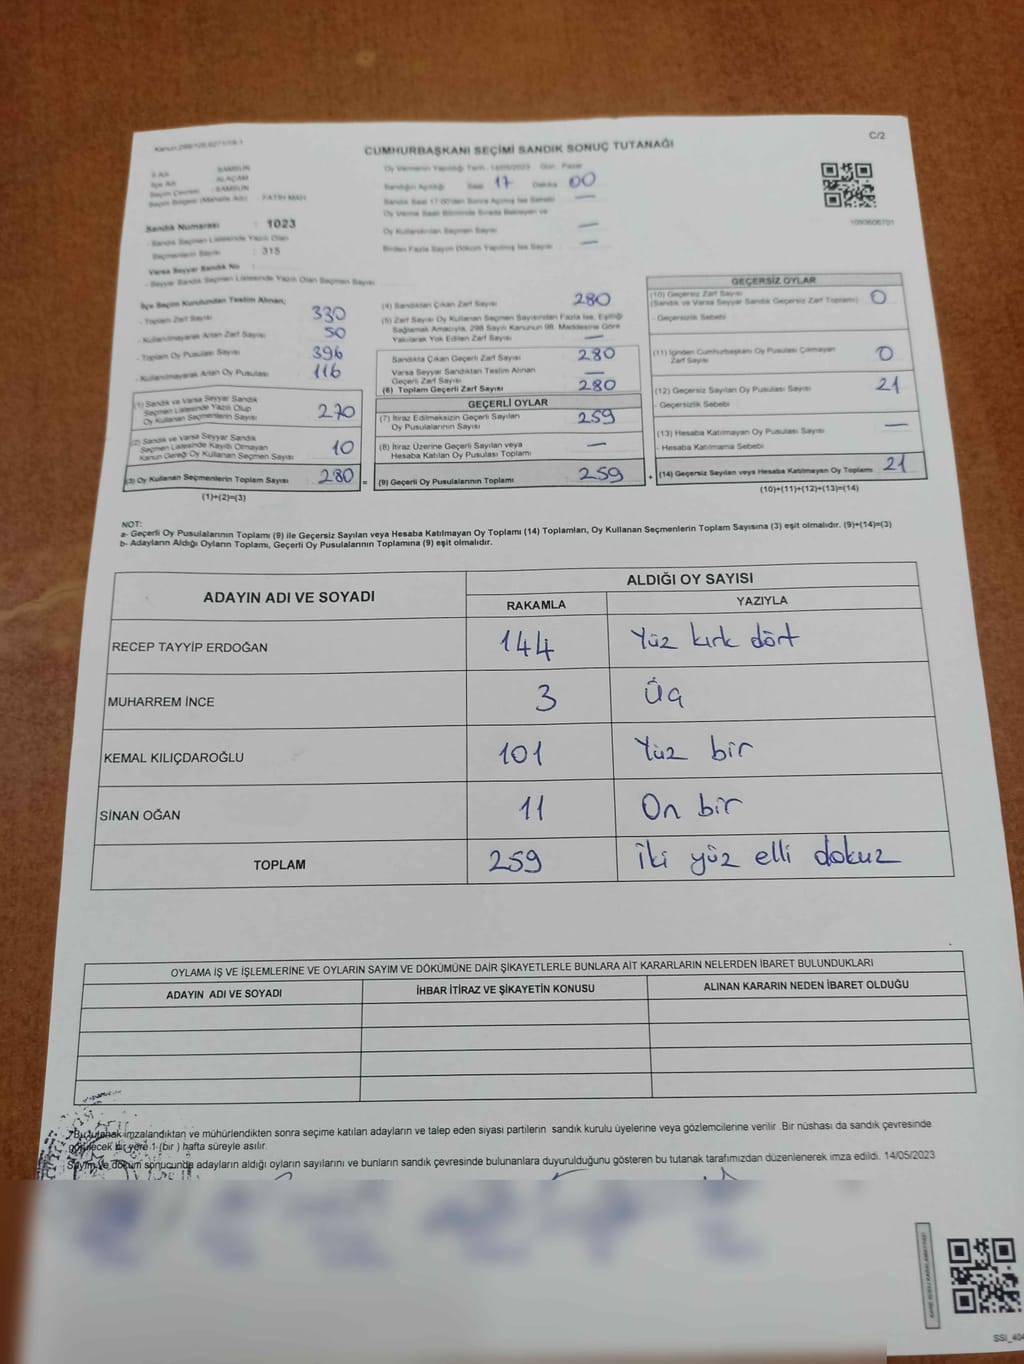 Kanun:298/126,6271/19-1
C/2
CUMHURBAŞKANI SEÇİMİ SANDIK SONUÇ TUTANAĞI
İl Adı : SAMSUN
İlçe Adı : ALAÇAM
Seçim Çevresi : SAMSUN
Seçim Bölgesi (Mahalle Adı) : FATİH MAH
Sandık Numarası : 1023
- Sandık Seçmen Listesinde Yazılı Olan
Seçmenlerin Sayısı : 315
Varsa Seyyar Sandık No
- Seyyar Sandık Seçmen Listesinde Yazılı Olan Seçmen Sayısı
Oy Vermenin Yapıldığı Tarih : 14/05/2023 Gün: Pazar
Sandığın Açıldığı Saat 17 Dakika 00
Sandık Saat 17.00'den Sonra Açılmış İse Sebebi —
Oy Verme Saati Bitiminde Sırada Bekleyen ve
Oy Kullandırılan Seçmen Sayısı —
Birden Fazla Sayım Döküm Yapılmış İse Sayısı —
1093606701
İlçe Seçim Kurulundan Teslim Alınan;
- Toplam Zarf Sayısı 330
- Kullanılmayarak Artan Zarf Sayısı 50
- Toplam Oy Pusulası Sayısı 396
- Kullanılmayarak Artan Oy Pusulası 116
(1) Sandık ve Varsa Seyyar Sandık
Seçmen Listesinde Yazılı Olup
Oy Kullanan Seçmenlerin Sayısı 270
(2) Sandık ve Varsa Seyyar Sandık
Seçmen Listesinde Kayıtlı Olmayan
Kanun Gereği Oy Kullanan Seçmen Sayısı 10
(3) Oy Kullanan Seçmenlerin Toplam Sayısı 280 =
(1)+(2)=(3)
(4) Sandıktan Çıkan Zarf Sayısı 280
(5) Zarf Sayısı Oy Kullanan Seçmen Sayısından Fazla İse, Eşitliği
Sağlamak Amacıyla, 298 Sayılı Kanunun 98. Maddesine Göre
Yakılarak Yok Edilen Zarf Sayısı —
Sandıkta Çıkan Geçerli Zarf Sayısı 280
Varsa Seyyar Sandıktan Teslim Alınan
Geçerli Zarf Sayısı —
(6) Toplam Geçerli Zarf Sayısı 280
GEÇERLİ OYLAR
(7) İtiraz Edilmeksizin Geçerli Sayılan
Oy Pusulalarının Sayısı 259
(8) İtiraz Üzerine Geçerli Sayılan veya
Hesaba Katılan Oy Pusulası Toplamı —
(9) Geçerli Oy Pusulalarının Toplamı 259 +
GEÇERSİZ OYLAR
(10) Geçersiz Zarf Sayısı
(Sandık ve Varsa Seyyar Sandık Geçersiz Zarf Toplamı) 0
- Geçersizlik Sebebi
(11) İçinden Cumhurbaşkanı Oy Pusulası Çıkmayan
Zarf Sayısı 0
(12) Geçersiz Sayılan Oy Pusulası Sayısı 21
- Geçersizlik Sebebi
(13) Hesaba Katılmayan Oy Pusulası Sayısı —
- Hesaba Katılmama Sebebi
(14) Geçersiz Sayılan veya Hesaba Katılmayan Oy Toplamı 21
(10)+(11)+(12)+(13)=(14)
NOT:
a- Geçerli Oy Pusulalarının Toplamı (9) ile Geçersiz Sayılan veya Hesaba Katılmayan Oy Toplamı (14) Toplamları, Oy Kullanan Seçmenlerin Toplam Sayısına (3) eşit olmalıdır. (9)+(14)=(3)
b- Adayların Aldığı Oyların Toplamı, Geçerli Oy Pusulalarının Toplamına (9) eşit olmalıdır.
ADAYIN ADI VE SOYADI
ALDIĞI OY SAYISI
RAKAMLA YAZIYLA
RECEP TAYYİP ERDOĞAN 144 Yüz kırk dört
MUHARREM İNCE 3 Üç
KEMAL KILIÇDAROĞLU 101 Yüz bir
SİNAN OĞAN 11 On bir
TOPLAM 259 İki yüz elli dokuz
OYLAMA İŞ VE İŞLEMLERİNE VE OYLARIN SAYIM VE DÖKÜMÜNE DAİR ŞİKAYETLERLE BUNLARA AİT KARARLARIN NELERDEN İBARET BULUNDUKLARI
ADAYIN ADI VE SOYADI İHBAR İTİRAZ VE ŞİKAYETİN KONUSU ALINAN KARARIN NEDEN İBARET OLDUĞU
Bu tutanak imzalandıktan ve mühürlendikten sonra seçime katılan adayların ve talep eden siyasi partilerin sandık kurulu üyelerine veya gözlemcilerine verilir. Bir nüshası da sandık çevresinde
görülecek bir yere 1 (bir) hafta süreyle asılır.
Sayım ve döküm sonucunda adayların aldığı oyların sayılarını ve bunların sandık çevresinde bulunanlara duyurulduğunu gösteren bu tutanak tarafımızdan düzenlenerek imza edildi. 14/05/2023